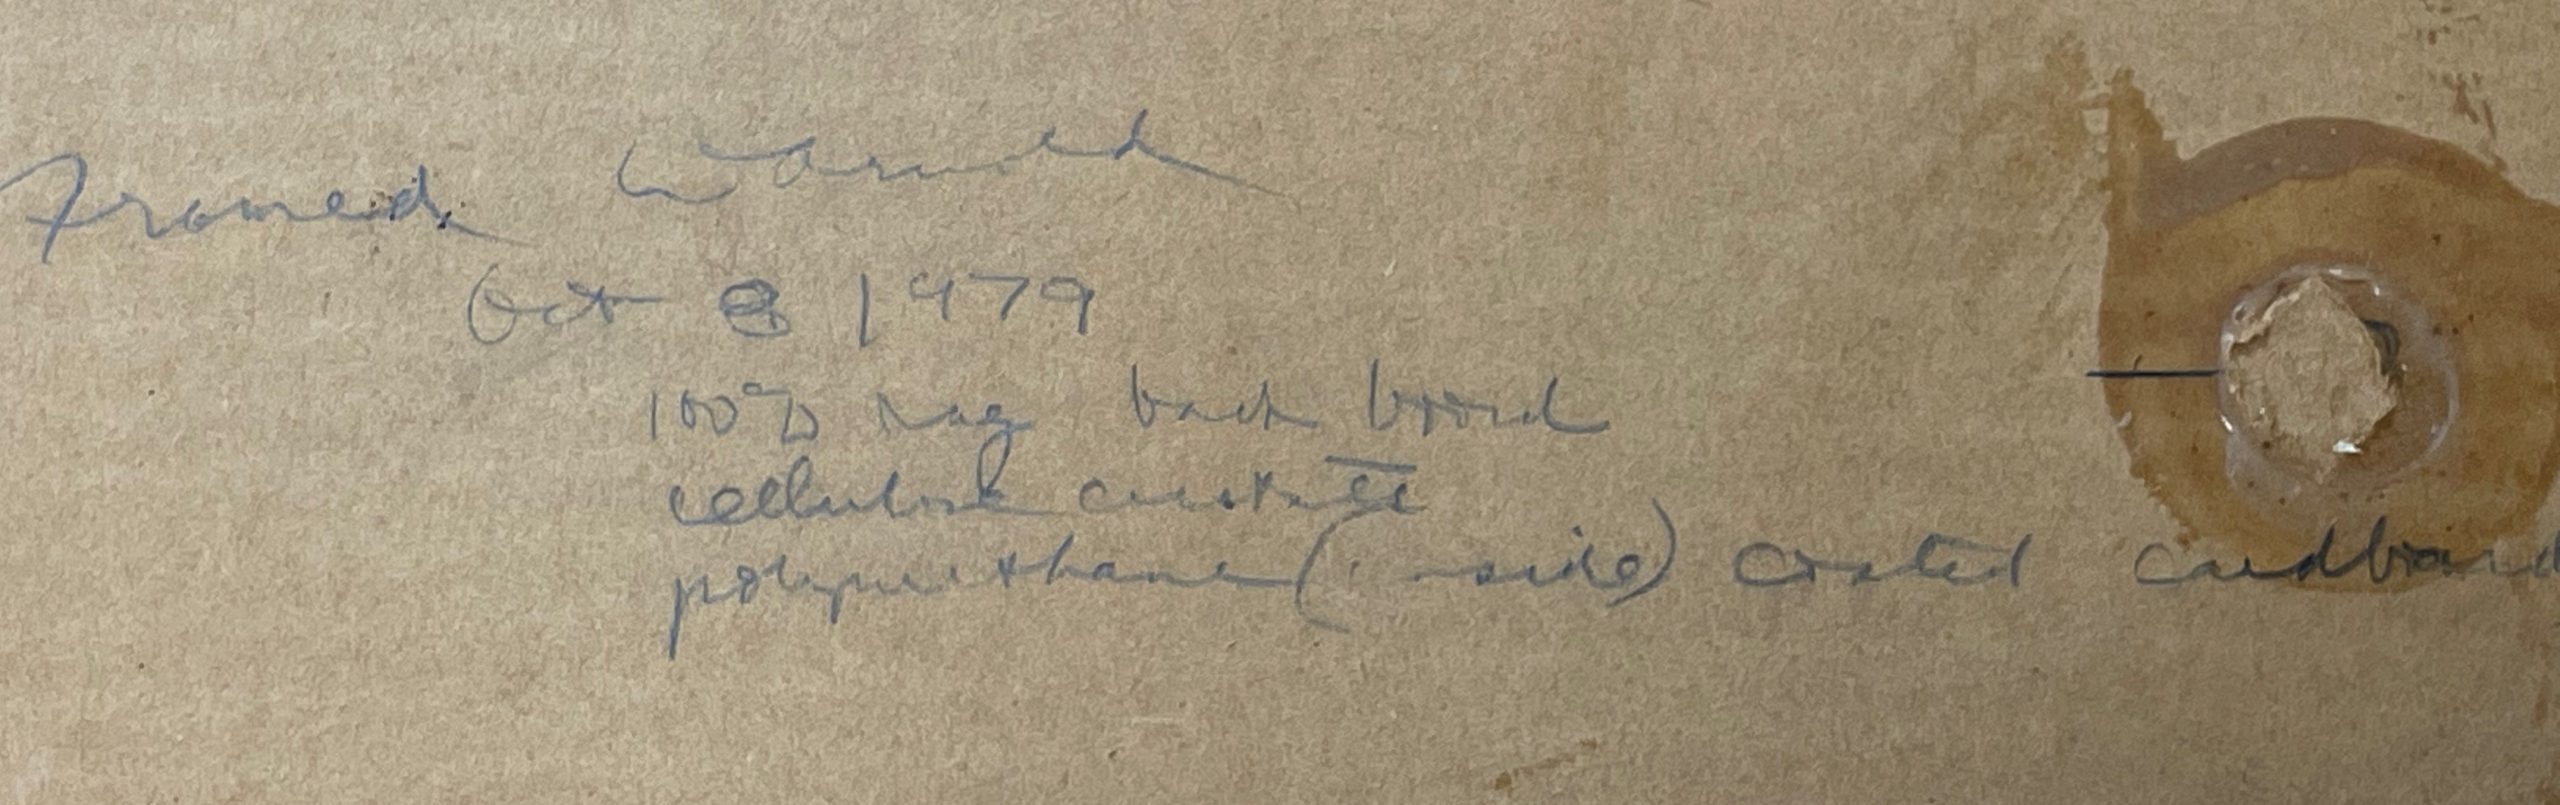 Framed
Oct 8 1979
100% rag back board
cellulose acetate
polyurethane (inside) coated cardboard